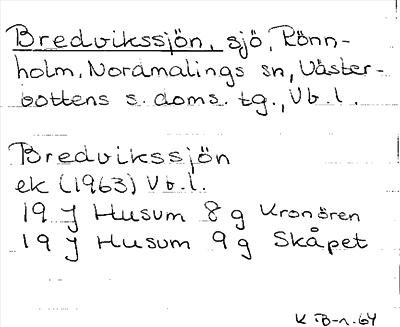 Bredvikssjön, sjö, Rönn-
holm, Nordmalings sn, Väster-
bottens s. doms. tg., Vb. l.
Bredvikssjön
ek (1963) Vb. l.
19 J Husum 8 g Kronören
19 J Husum 9 g Skåpet
K B-n. 64